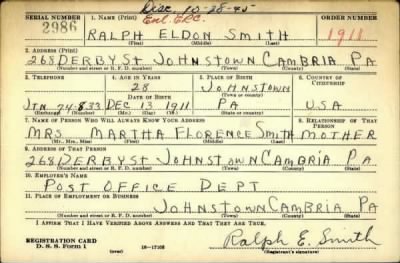 Disc. 10-28-45
SERIAL NUMBER 1. Name (Print) ORDER NUMBER
Enl. ERC.
2986 RALPH ELDON SMITH 1918
(First) (Middle) (Last)
2. Address (Print)
268 DERBY St JOHNSTOWN CAMBRIA PA
(Number and street or R. F. D. number) (Town) (County) (State)
3. Telephone 4. Age in Years 5. Place of Birth 6. Country of Citizenship
28 JOHNSTOWN
Date of Birth (Town or county)
JTN 74-833 DEC 13 1911 PA USA
(Exchange) (Number) (Mo.) (Day) (Yr.) (State or country)
7. Name of Person Who Will Always Know Your Address 8. Relationship of That Person
MRS MARTHA FLORENCE SMITH MOTHER
(Mr., Mrs., Miss) (First) (Middle) (Last)
9. Address of That Person
268 DERBY St JOHNSTOWN CAMBRIA PA
(Number and street or R. F. D. number) (Town) (County) (State)
10. Employer's Name
POST OFFICE DEPT
11. Place of Employment or Business
JOHNSTOWN CAMBRIA PA
(Number and street or R. F. D. number) (Town) (County) (State)
I Affirm That I Have Verified Above Answers and That They Are True.
REGISTRATION CARD
D. S. S. Form 1 (over) 16-17105 Ralph E. Smith
(Registrant's signature)